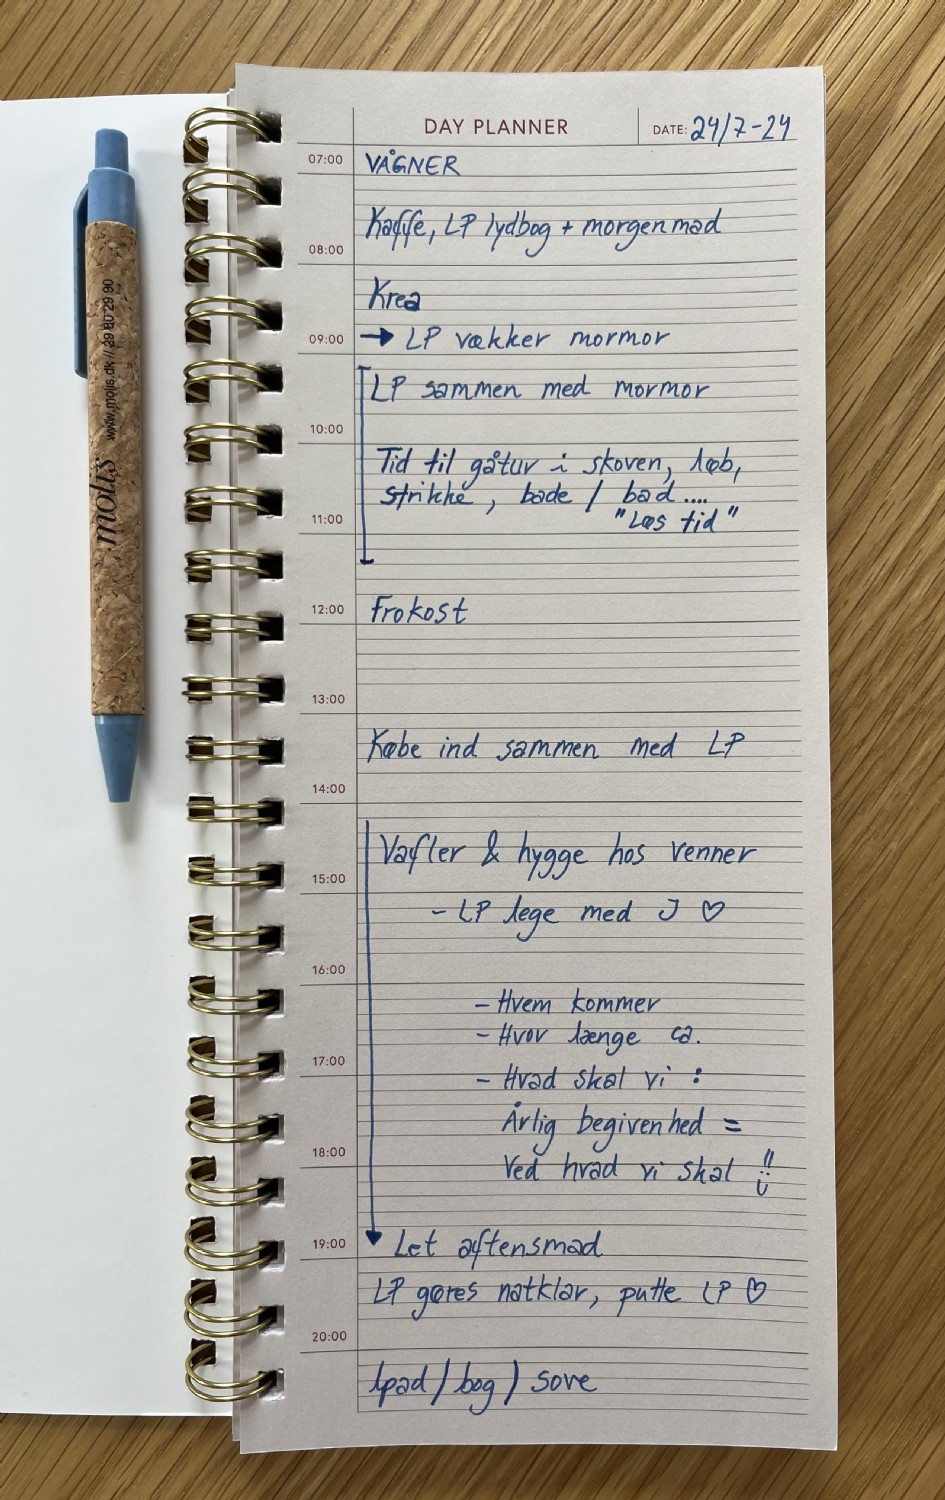 DAY PLANNER
DATE: 24/7-24
07:00 VÅGNER
Kaffe, LP lydbog + morgenmad
08:00
Krea
09:00 → LP vækker mormor
LP sammen med mormor
10:00
Tid til gåtur i skoven, løb,
strikke, bade / bad....
"Løs tid"
11:00
12:00 Frokost
13:00
Købe ind sammen med LP
14:00
Vafler & hygge hos venner
15:00
- LP lege med J ♡
16:00
- Hvem kommer
- Hvor længe ca.
17:00
- Hvad skal vi :
Årlig begivenhed =
18:00
Ved hvad vi skal !!
19:00 Let aftensmad
LP gøres natklar, putte LP ♡
20:00
Ipad / bog / sove
molis www.molis.dk // 29 80 29 90